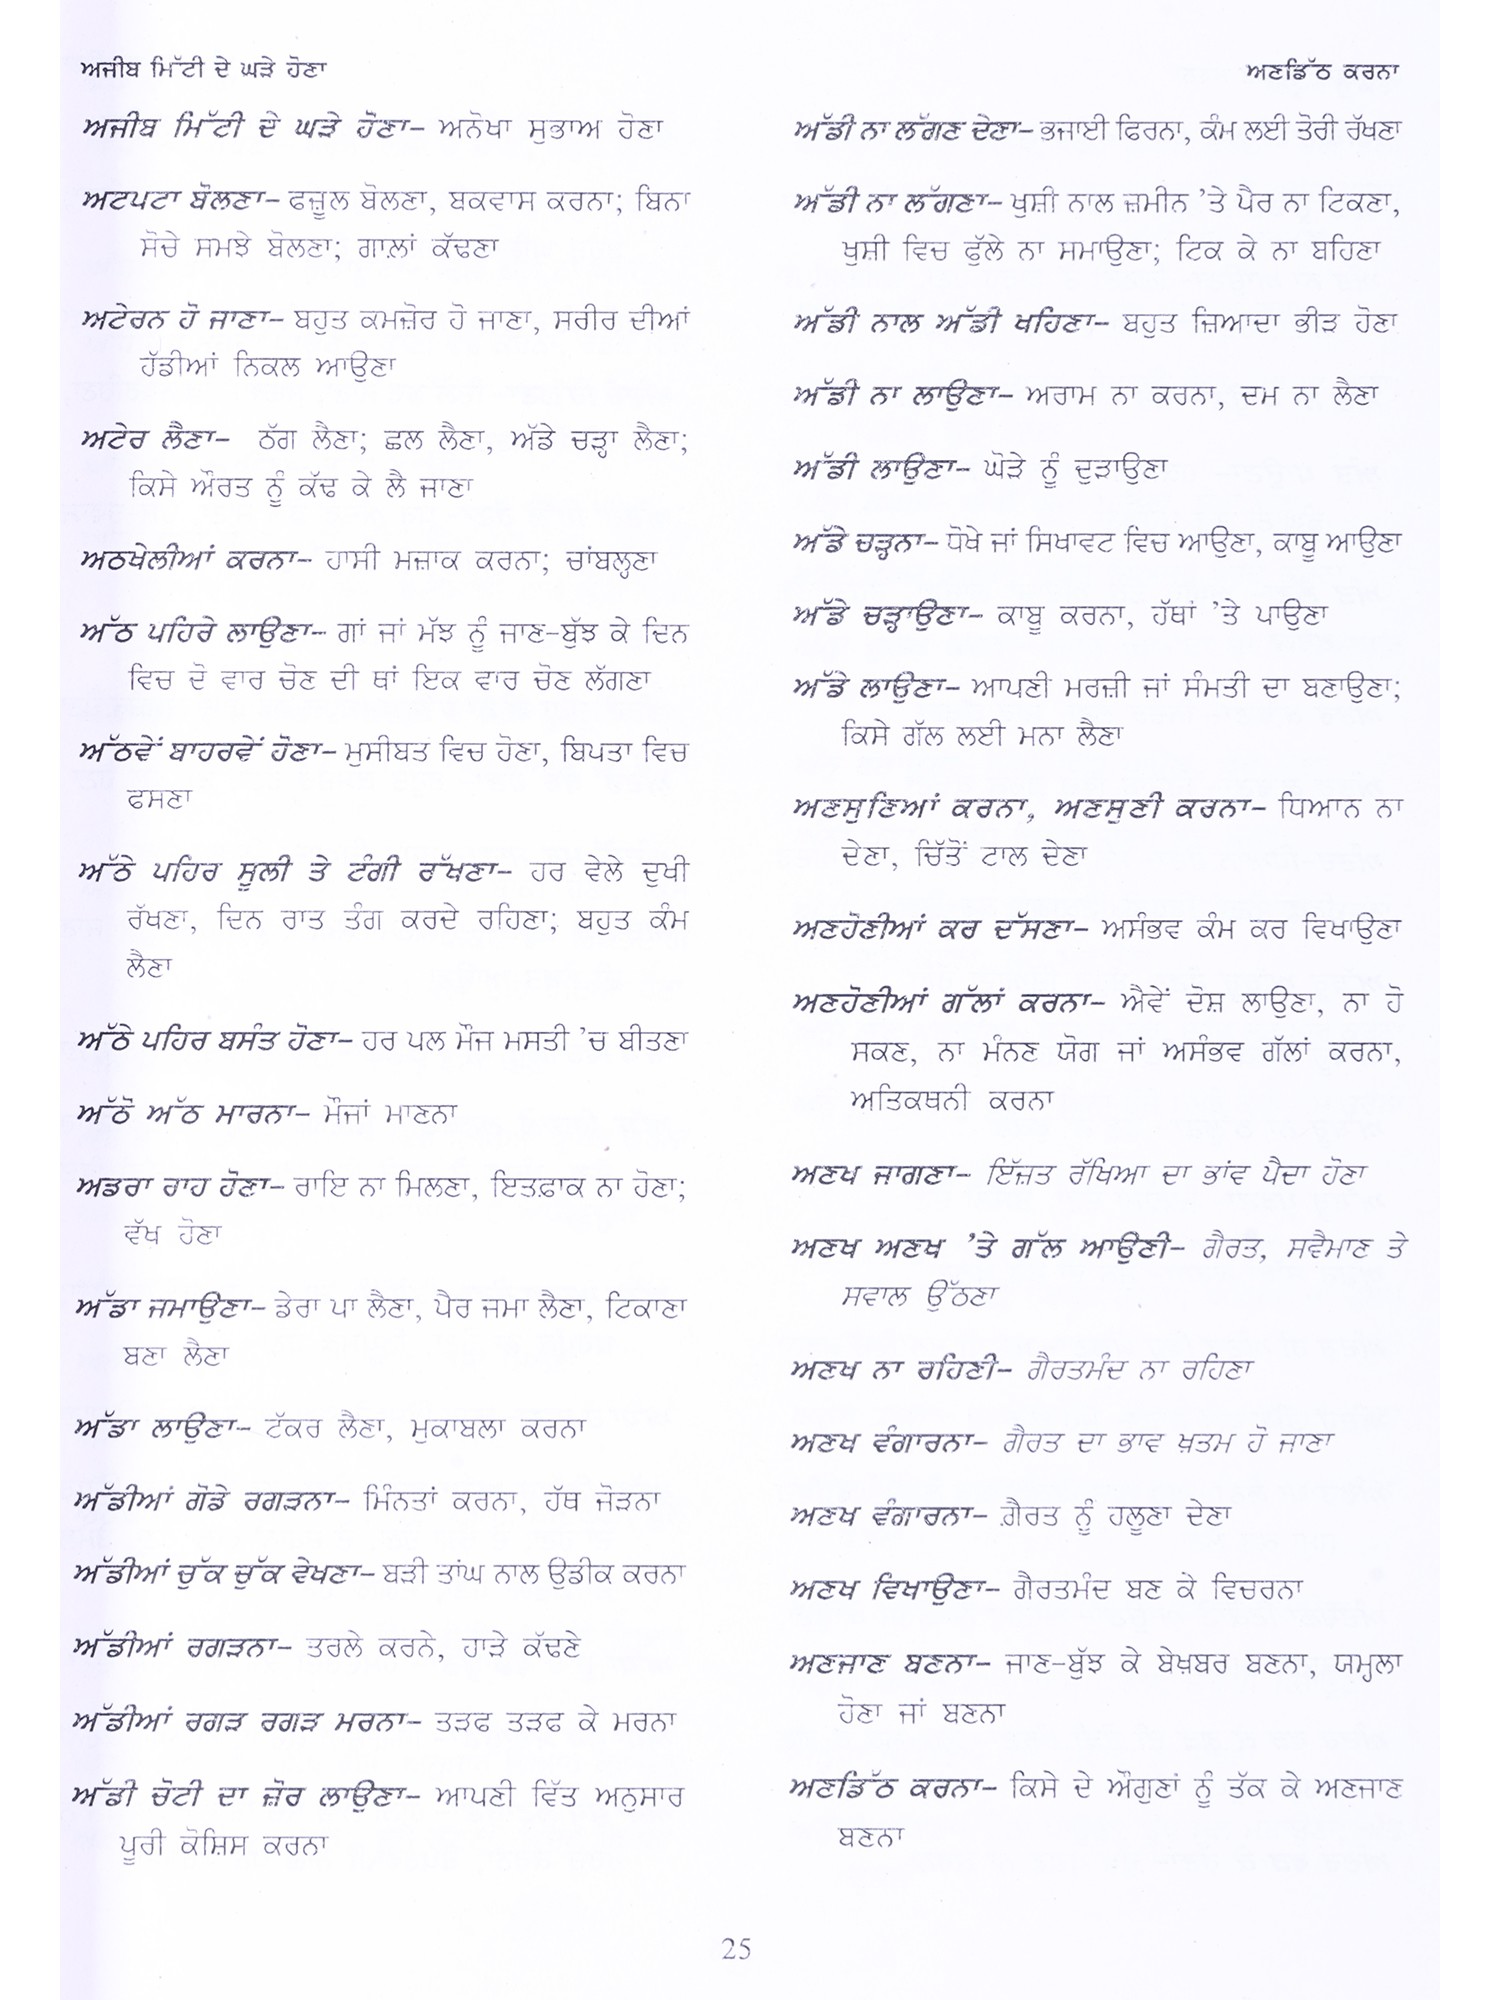 ਅਜੀਬ ਮਿੱਟੀ ਦੇ ਘੜੇ ਹੋਣਾ
ਅਣਡਿੱਠ ਕਰਨਾ
ਅਜੀਬ ਮਿੱਟੀ ਦੇ ਘੜੇ ਹੋਣਾ– ਅਨੋਖਾ ਸੁਭਾਅ ਹੋਣਾ
ਅਟਪਟਾ ਬੋਲਣਾ– ਫਜ਼ੂਲ ਬੋਲਣਾ, ਬਕਵਾਸ ਕਰਨਾ; ਬਿਨਾ
ਸੋਚੇ ਸਮਝੇ ਬੋਲਣਾ; ਗਾਲਾਂ ਕੱਢਣਾ
ਅਟੇਰਨ ਹੋ ਜਾਣਾ– ਬਹੁਤ ਕਮਜ਼ੋਰ ਹੋ ਜਾਣਾ, ਸਰੀਰ ਦੀਆਂ
ਹੱਡੀਆਂ ਨਿਕਲ ਆਉਣਾ
ਅਟੇਰ ਲੈਣਾ– ਠੱਗ ਲੈਣਾ; ਛਲ ਲੈਣਾ, ਅੱਡੇ ਚੜ੍ਹਾ ਲੈਣਾ;
ਕਿਸੇ ਔਰਤ ਨੂੰ ਕੱਢ ਕੇ ਲੈ ਜਾਣਾ
ਅਠਖੇਲੀਆਂ ਕਰਨਾ– ਹਾਸੀ ਮਜ਼ਾਕ ਕਰਨਾ; ਚਾਂਬਲ੍ਹਣਾ
ਅੱਠ ਪਹਿਰੇ ਲਾਉਣਾ– ਗਾਂ ਜਾਂ ਮੱਝ ਨੂੰ ਜਾਣ-ਬੁੱਝ ਕੇ ਦਿਨ
ਵਿਚ ਦੋ ਵਾਰ ਚੋਣ ਦੀ ਥਾਂ ਇਕ ਵਾਰ ਚੋਣ ਲੱਗਣਾ
ਅੱਠਵੇਂ ਬਾਹਰਵੇਂ ਹੋਣਾ– ਮੁਸੀਬਤ ਵਿਚ ਹੋਣਾ, ਬਿਪਤਾ ਵਿਚ
ਫਸਣਾ
ਅੱਠੇ ਪਹਿਰ ਸੂਲੀ ਤੇ ਟੰਗੀ ਰੱਖਣਾ– ਹਰ ਵੇਲੇ ਦੁਖੀ
ਰੱਖਣਾ, ਦਿਨ ਰਾਤ ਤੰਗ ਕਰਦੇ ਰਹਿਣਾ; ਬਹੁਤ ਕੰਮ
ਲੈਣਾ
ਅੱਠੇ ਪਹਿਰ ਬਸੰਤ ਹੋਣਾ– ਹਰ ਪਲ ਮੌਜ ਮਸਤੀ ’ਚ ਬੀਤਣਾ
ਅੱਠੋ ਅੱਠ ਮਾਰਨਾ– ਮੌਜਾਂ ਮਾਣਨਾ
ਅਡਰਾ ਰਾਹ ਹੋਣਾ– ਰਾਇ ਨਾ ਮਿਲਣਾ, ਇਤਫ਼ਾਕ ਨਾ ਹੋਣਾ;
ਵੱਖ ਹੋਣਾ
ਅੱਡਾ ਜਮਾਉਣਾ– ਡੇਰਾ ਪਾ ਲੈਣਾ, ਪੈਰ ਜਮਾ ਲੈਣਾ, ਟਿਕਾਣਾ
ਬਣਾ ਲੈਣਾ
ਅੱਡਾ ਲਾਉਣਾ– ਟੱਕਰ ਲੈਣਾ, ਮੁਕਾਬਲਾ ਕਰਨਾ
ਅੱਡੀਆਂ ਗੋਡੇ ਰਗੜਨਾ– ਮਿੰਨਤਾਂ ਕਰਨਾ, ਹੱਥ ਜੋੜਨਾ
ਅੱਡੀਆਂ ਚੁੱਕ ਚੁੱਕ ਵੇਖਣਾ– ਬੜੀ ਤਾਂਘ ਨਾਲ ਉਡੀਕ ਕਰਨਾ
ਅੱਡੀਆਂ ਰਗੜਨਾ– ਤਰਲੇ ਕਰਨੇ, ਹਾੜੇ ਕੱਢਣੇ
ਅੱਡੀਆਂ ਰਗੜ ਰਗੜ ਮਰਨਾ– ਤੜਫ ਤੜਫ ਕੇ ਮਰਨਾ
ਅੱਡੀ ਚੋਟੀ ਦਾ ਜ਼ੋਰ ਲਾਉਣਾ– ਆਪਣੀ ਵਿੱਤ ਅਨੁਸਾਰ
ਪੂਰੀ ਕੋਸ਼ਿਸ ਕਰਨਾ
ਅੱਡੀ ਨਾ ਲੱਗਣ ਦੇਣਾ– ਭਜਾਈ ਫਿਰਨਾ, ਕੰਮ ਲਈ ਤੋਰੀ ਰੱਖਣਾ
ਅੱਡੀ ਨਾ ਲੱਗਣਾ– ਖੁਸ਼ੀ ਨਾਲ ਜ਼ਮੀਨ ’ਤੇ ਪੈਰ ਨਾ ਟਿਕਣਾ,
ਖੁਸ਼ੀ ਵਿਚ ਫੁੱਲੇ ਨਾ ਸਮਾਉਣਾ; ਟਿਕ ਕੇ ਨਾ ਬਹਿਣਾ
ਅੱਡੀ ਨਾਲ ਅੱਡੀ ਖਹਿਣਾ– ਬਹੁਤ ਜ਼ਿਆਦਾ ਭੀੜ ਹੋਣਾ
ਅੱਡੀ ਨਾ ਲਾਉਣਾ– ਅਰਾਮ ਨਾ ਕਰਨਾ, ਦਮ ਨਾ ਲੈਣਾ
ਅੱਡੀ ਲਾਉਣਾ– ਘੋੜੇ ਨੂੰ ਦੁੜਾਉਣਾ
ਅੱਡੇ ਚੜ੍ਹਨਾ– ਧੋਖੇ ਜਾਂ ਸਿਖਾਵਟ ਵਿਚ ਆਉਣਾ, ਕਾਬੂ ਆਉਣਾ
ਅੱਡੇ ਚੜ੍ਹਾਉਣਾ– ਕਾਬੂ ਕਰਨਾ, ਹੱਥਾਂ ’ਤੇ ਪਾਉਣਾ
ਅੱਡੇ ਲਾਉਣਾ– ਆਪਣੀ ਮਰਜ਼ੀ ਜਾਂ ਸੰਮਤੀ ਦਾ ਬਣਾਉਣਾ;
ਕਿਸੇ ਗੱਲ ਲਈ ਮਨਾ ਲੈਣਾ
ਅਣਸੁਣਿਆਂ ਕਰਨਾ, ਅਣਸੁਣੀ ਕਰਨਾ– ਧਿਆਨ ਨਾ
ਦੇਣਾ, ਚਿੱਤੋਂ ਟਾਲ ਦੇਣਾ
ਅਣਹੋਣੀਆਂ ਕਰ ਦੱਸਣਾ– ਅਸੰਭਵ ਕੰਮ ਕਰ ਵਿਖਾਉਣਾ
ਅਣਹੋਣੀਆਂ ਗੱਲਾਂ ਕਰਨਾ– ਐਵੇਂ ਦੋਸ਼ ਲਾਉਣਾ, ਨਾ ਹੋ
ਸਕਣ, ਨਾ ਮੰਨਣ ਯੋਗ ਜਾਂ ਅਸੰਭਵ ਗੱਲਾਂ ਕਰਨਾ,
ਅਤਿਕਥਨੀ ਕਰਨਾ
ਅਣਖ ਜਾਗਣਾ– ਇੱਜ਼ਤ ਰੱਖਿਆ ਦਾ ਭਾਂਵ ਪੈਦਾ ਹੋਣਾ
ਅਣਖ ਅਣਖ ’ਤੇ ਗੱਲ ਆਉਣੀ– ਗੈਰਤ, ਸਵੈਮਾਣ ਤੇ
ਸਵਾਲ ਉੱਠਣਾ
ਅਣਖ ਨਾ ਰਹਿਣੀ– ਗੈਰਤਮੰਦ ਨਾ ਰਹਿਣਾ
ਅਣਖ ਵੰਗਾਰਨਾ– ਗੈਰਤ ਦਾ ਭਾਵ ਖ਼ਤਮ ਹੋ ਜਾਣਾ
ਅਣਖ ਵੰਗਾਰਨਾ– ਗ਼ੈਰਤ ਨੂੰ ਹਲੂਣਾ ਦੇਣਾ
ਅਣਖ ਵਿਖਾਉਣਾ– ਗੈਰਤਮੰਦ ਬਣ ਕੇ ਵਿਚਰਨਾ
ਅਣਜਾਣ ਬਣਨਾ– ਜਾਣ-ਬੁੱਝ ਕੇ ਬੇਖ਼ਬਰ ਬਣਨਾ, ਯਮ੍ਹਲਾ
ਹੋਣਾ ਜਾਂ ਬਣਨਾ
ਅਣਡਿੱਠ ਕਰਨਾ– ਕਿਸੇ ਦੇ ਔਗੁਣਾਂ ਨੂੰ ਤੱਕ ਕੇ ਅਣਜਾਣ
ਬਣਨਾ
25